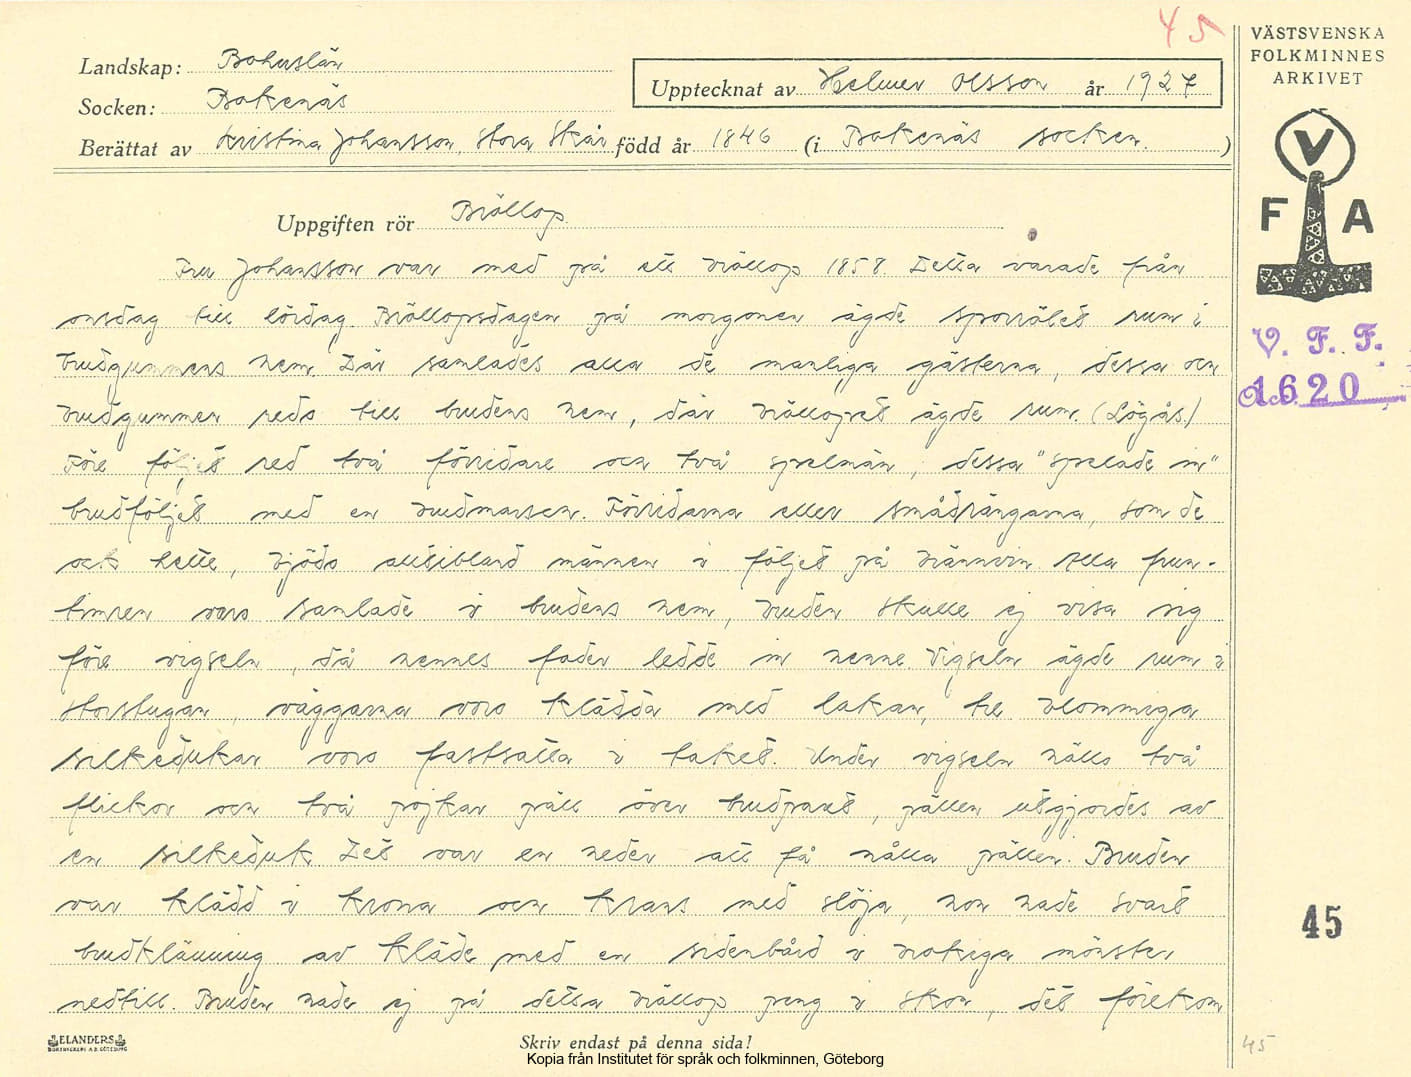 45
Landskap: Bohuslän
Socken: Bokenäs
Upptecknat av Helmer Olsson år 1927
Berättat av Kristina Johansson, Stora Skår född år 1846 (i Bokenäs socken.)
VÄSTSVENSKA
FOLKMINNES
ARKIVET
V
F A
V. F. F.
Acc. 1620
Uppgiften rör Bröllop.
Fru Johansson var med på ett bröllop 1858. Detta varade från
onsdag till lördag. Bröllopsdagen på morgonen ägde sporrölet rum i
brudgummens hem. Där samlades alla de manliga gästerna, dessa och
brudgummen redo till brudens hem, där bröllopet ägde rum. (Lögås.)
Före följet red två förridare och två spelmän, dessa "spelade in"
brudföljet med en brudmarsch. Förridarna eller smådrängarna, som de
ock hette, bjödo alltibland männen i följet på brännvin. Alla frun-
timren voro samlade i brudens hem, bruden skulle ej visa sig
före vigseln, då hennes fader ledde in henne. Vigseln ägde rum i
storstugan, väggarna voro klädda med lakan, tre blommiga
silkedukar voro fastsatta i taket. Under vigseln höllo två
flickor och två pojkar päll över brudparet, pällen utgjordes av
en silkeduk. Det var en heder att få hålla pällen. Bruden
var klädd i krona och krans med slöja, hon hade svart
brudklänning av kläde med en sidenbård i brokiga mönster
nedtill. Bruden hade ej på detta bröllop peng i skon, det förekom
45
ELANDERS
BOKTRYCKERI A.B. GÖTEBORG
Skriv endast på denna sida!
Kopia från Institutet för språk och folkminnen, Göteborg
45